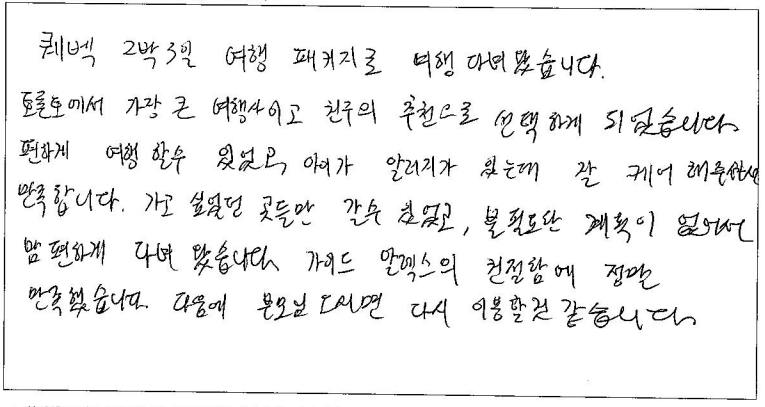 퀘벡 2박3일 여행 패키지로 여행 다녀 왔습니다.
토론토에서 가장 큰 여행사이고 친구의 추천으로 선택하게 되었습니다.
편하게 여행 할수 있었고, 아이가 알러지가 있는데 잘 케어 해주셔서
만족합니다. 가고 싶었던 곳들만 갈수 있었고, 불필요한 계획이 없어서
맘 편하게 다녀 왔습니다. 가이드 알렉스의 친절함에 정말
만족했습니다. 다음에 부모님 오시면 다시 이용할것 같습니다.